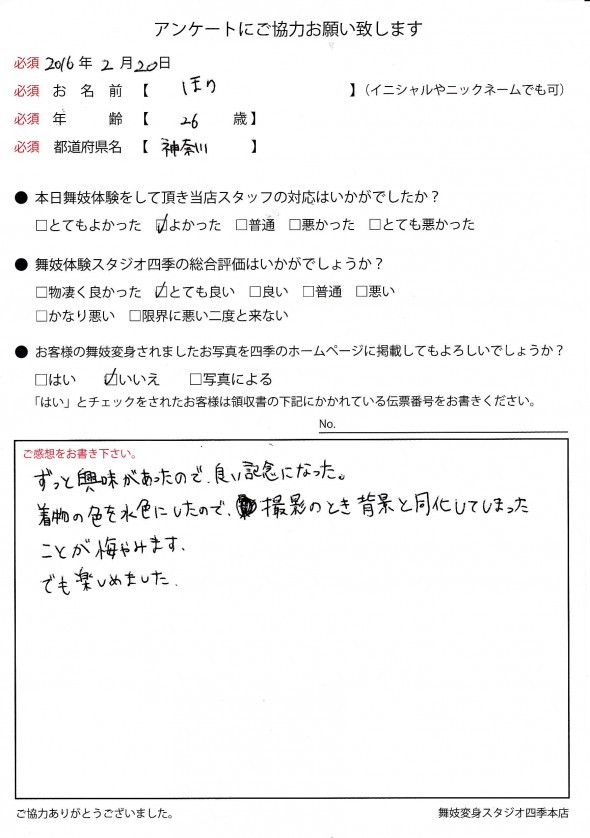 アンケートにご協力お願い致します
必須 2016年 2月20日
必須 お名前【 ほり 】（イニシャルやニックネームでも可）
必須 年齢【 26 歳】
必須 都道府県名【 神奈川 】
● 本日舞妓体験をして頂き当店スタッフの対応はいかがでしたか？
□とてもよかった ☑よかった □普通 □悪かった □とても悪かった
● 舞妓体験スタジオ四季の総合評価はいかがでしょうか？
□物凄く良かった ☑とても良い □良い □普通 □悪い
□かなり悪い □限界に悪い二度と来ない
● お客様の舞妓変身されましたお写真を四季のホームページに掲載してもよろしいでしょうか？
□はい ☑いいえ □写真による
「はい」とチェックをされたお客様は領収書の下記にかかれている伝票番号をお書きください。
No.
ご感想をお書き下さい。
ずっと興味があったので、良い記念になった。
着物の色を水色にしたので、撮影のとき背景と同化してしまった
ことが悔やみます.
でも楽しめました.
ご協力ありがとうございました。
舞妓変身スタジオ四季本店